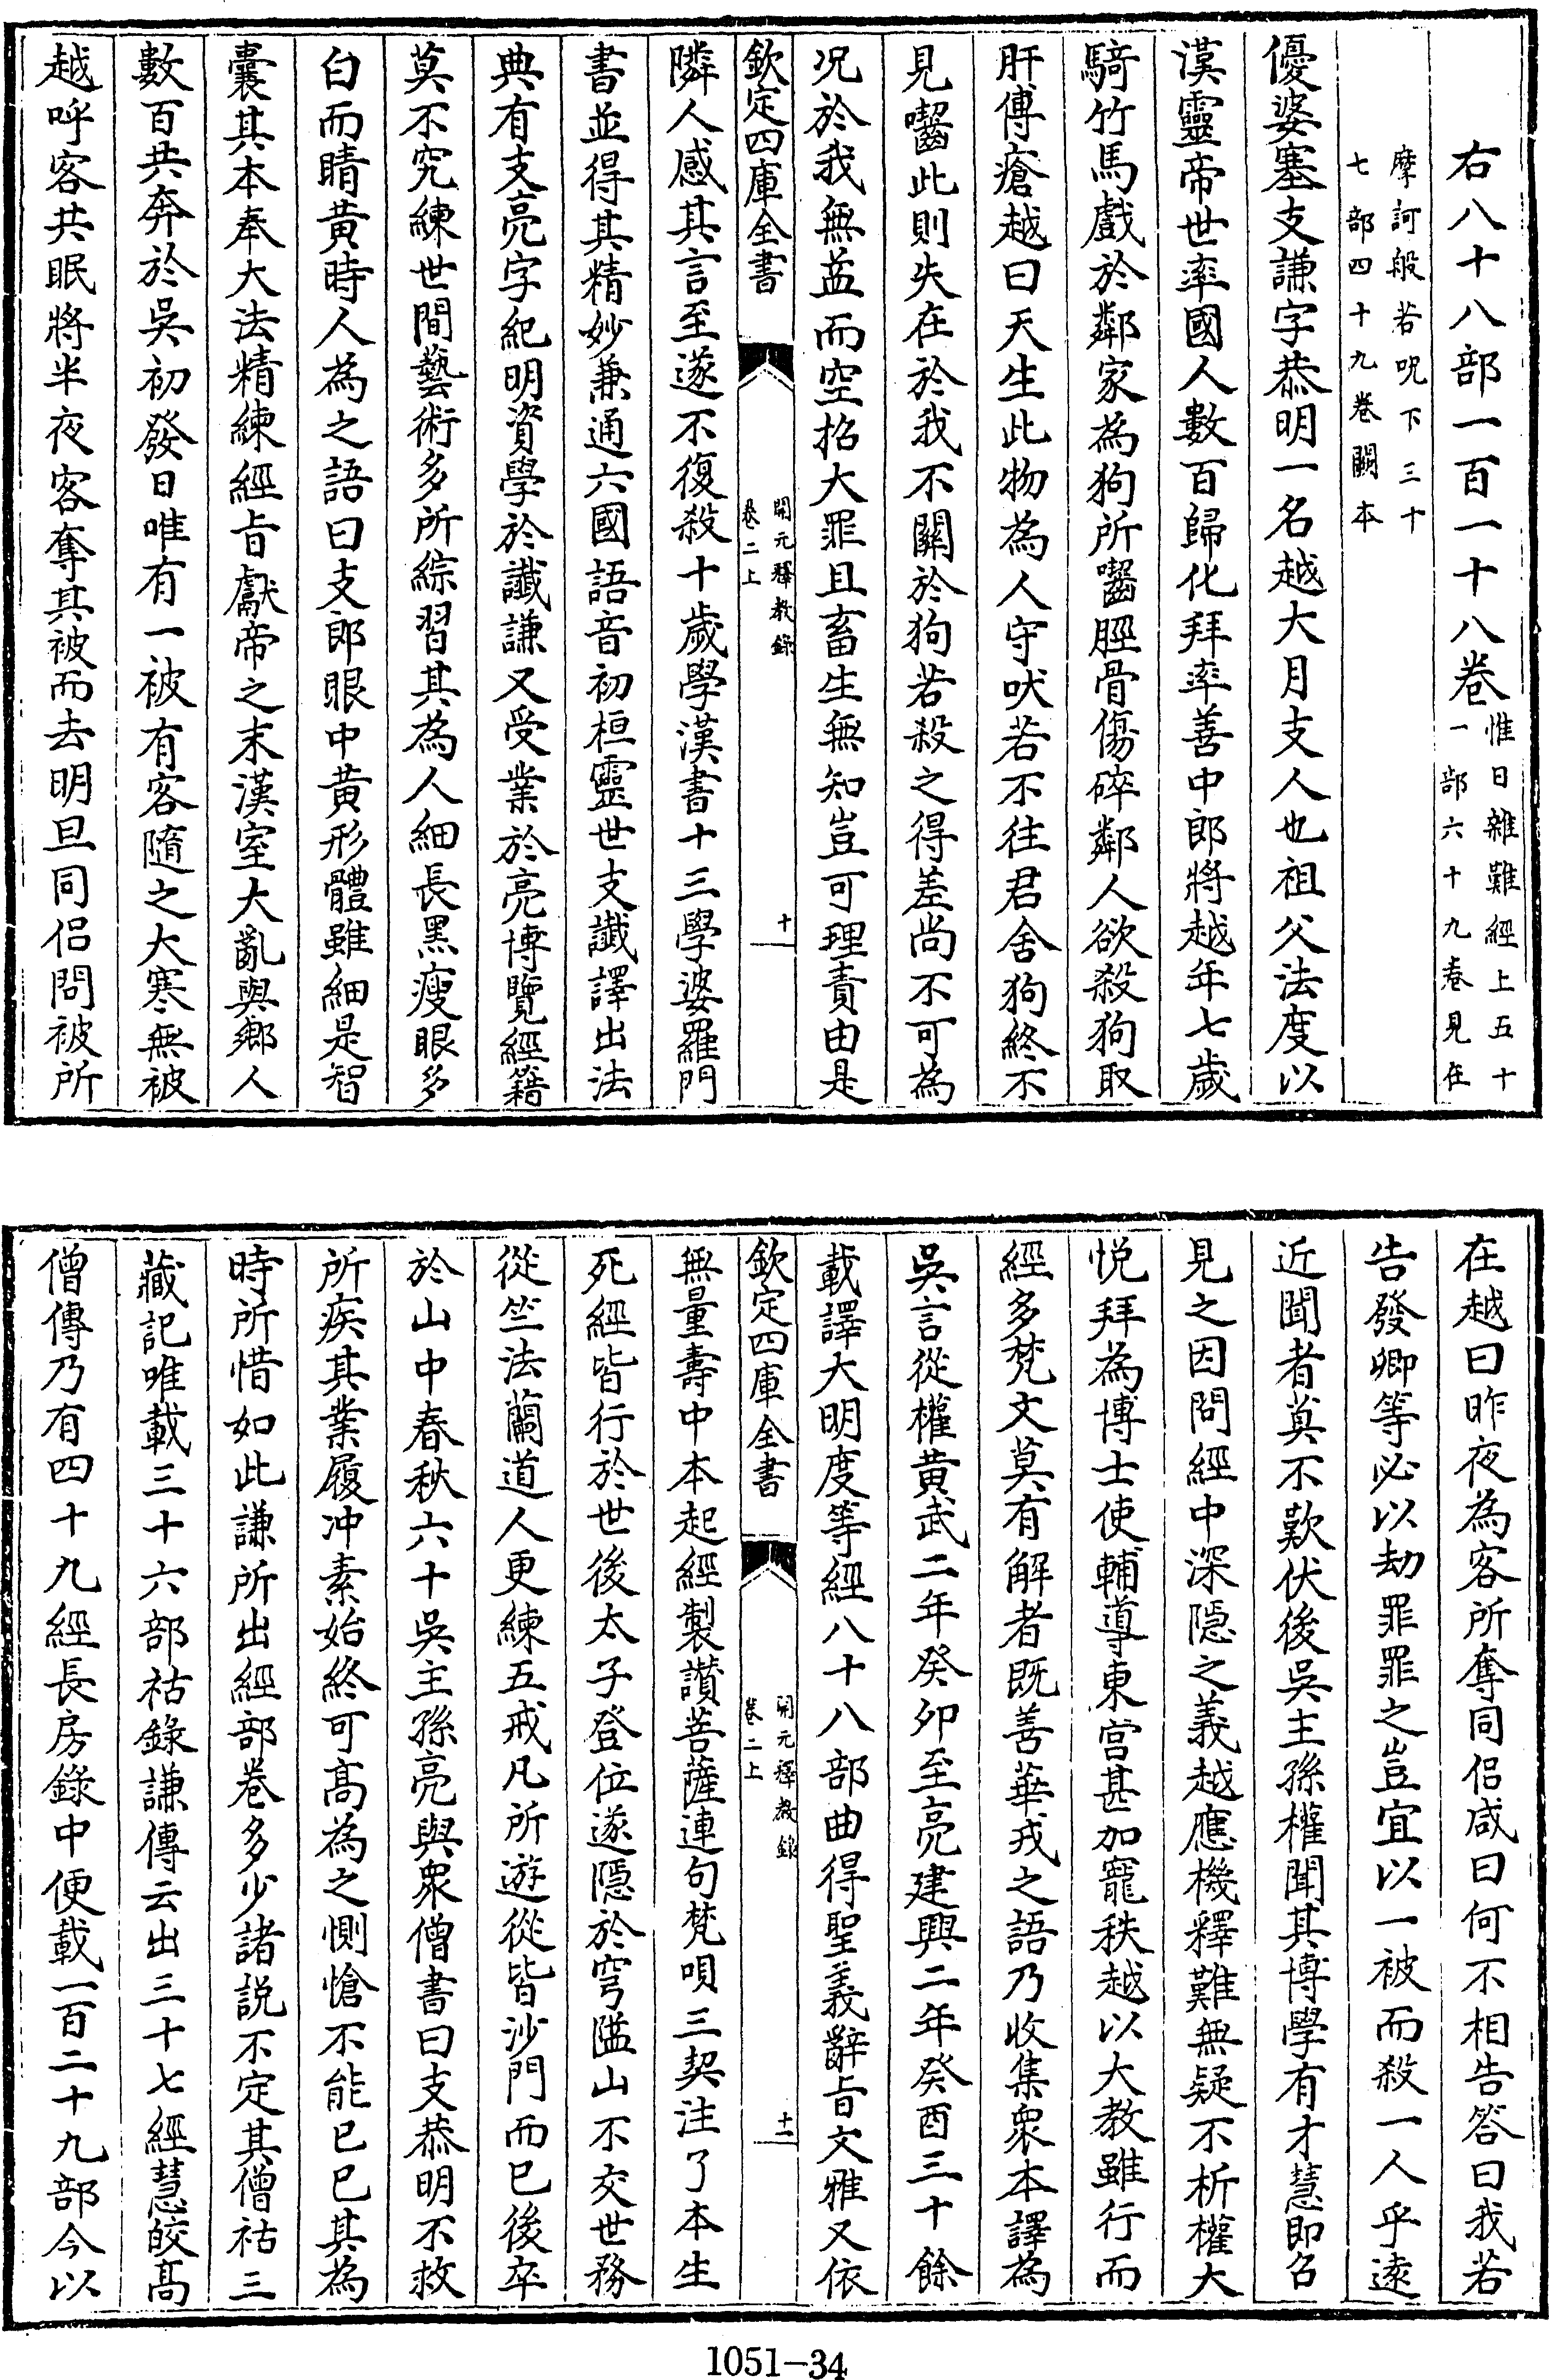 右八十八部一百一十八卷惟日雜難經上五十
一部六十九卷見在
摩訶般若呪下三十
七部四十九卷闕本
優婆塞支謙字恭明一名越大月支人也祖父法度以
漢靈帝世率國人數百歸化拜率善中郎將越年七歲
騎竹馬戲於鄰家為狗所囓脛骨傷碎鄰人欲殺狗取
肝傅瘡越曰天生此物為人守吠若不往君舍狗終不
見囓此則失在於我不關於狗若殺之得差尚不可為
況於我無益而空招大罪且畜生無知豈可理責由是
欽定四庫全書
開元釋教錄
卷二上
十
隣人感其言至遂不復殺十歲學漢書十三學婆羅門
書並得其精妙兼通六國語音初桓靈世支讖譯出法
典有支亮字紀明資學於讖謙又受業於亮博覽經籍
莫不究練世間藝術多所綜習其為人細長黑瘦眼多
白而睛黃時人為之語曰支郎眼中黃形體雖細是智
囊其本奉大法精練經旨獻帝之末漢室大亂與鄉人
數百共奔於吳初發日唯有一被有客隨之大寒無被
越呼客共眠將半夜客奪其被而去明旦同侶問被所
在越曰昨夜為客所奪同侶咸曰何不相告答曰我若
告發卿等必以劫罪罪之豈宜以一被而殺一人乎遠
近聞者莫不歎伏後吳主孫權聞其博學有才慧即召
見之因問經中深隱之義越應機釋難無疑不析權大
悅拜為博士使輔導東宮甚加寵秩越以大教雖行而
經多梵文莫有解者既善華戎之語乃收集衆本譯為
吳言從權黃武二年癸卯至亮建興二年癸酉三十餘
載譯大明度等經八十八部曲得聖義辭旨文雅又依
欽定四庫全書
開元釋教錄
卷二上
十一
無量壽中本起經製讚菩薩連句梵唄三契注了本生
死經皆行於世後太子登位遂隱於穹隘山不交世務
從竺法蘭道人更練五戒凡所遊從皆沙門而已後卒
於山中春秋六十吳主孫亮與衆僧書曰支恭明不救
所疾其業履冲素始終可高為之惻愴不能已已其為
時所惜如此謙所出經部卷多少諸說不定其僧祐三
藏記唯載三十六部祐錄謙傳云出三十七經慧皎高
僧傳乃有四十九經長房錄中便載一百二十九部今以
1051-34